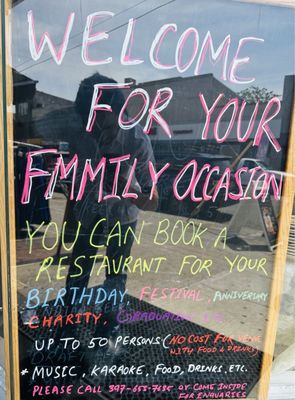 WELCOME
FOR YOUR
FMMILY OCCASION
YOU CAN BOOK A
RESTAURANT FOR YOUR
BIRTHDAY, FESTIVAL, ANNIVERSARY
CHARITY, GRADUATION
UP TO 50 PERSONS (NO COST FOR VENUE
WITH FOOD & DRINKS)
* MUSIC, KARAOKE, FOOD, DRINKS, ETC.
PLEASE CALL OR COME INSIDE
FOR ENQUARIES